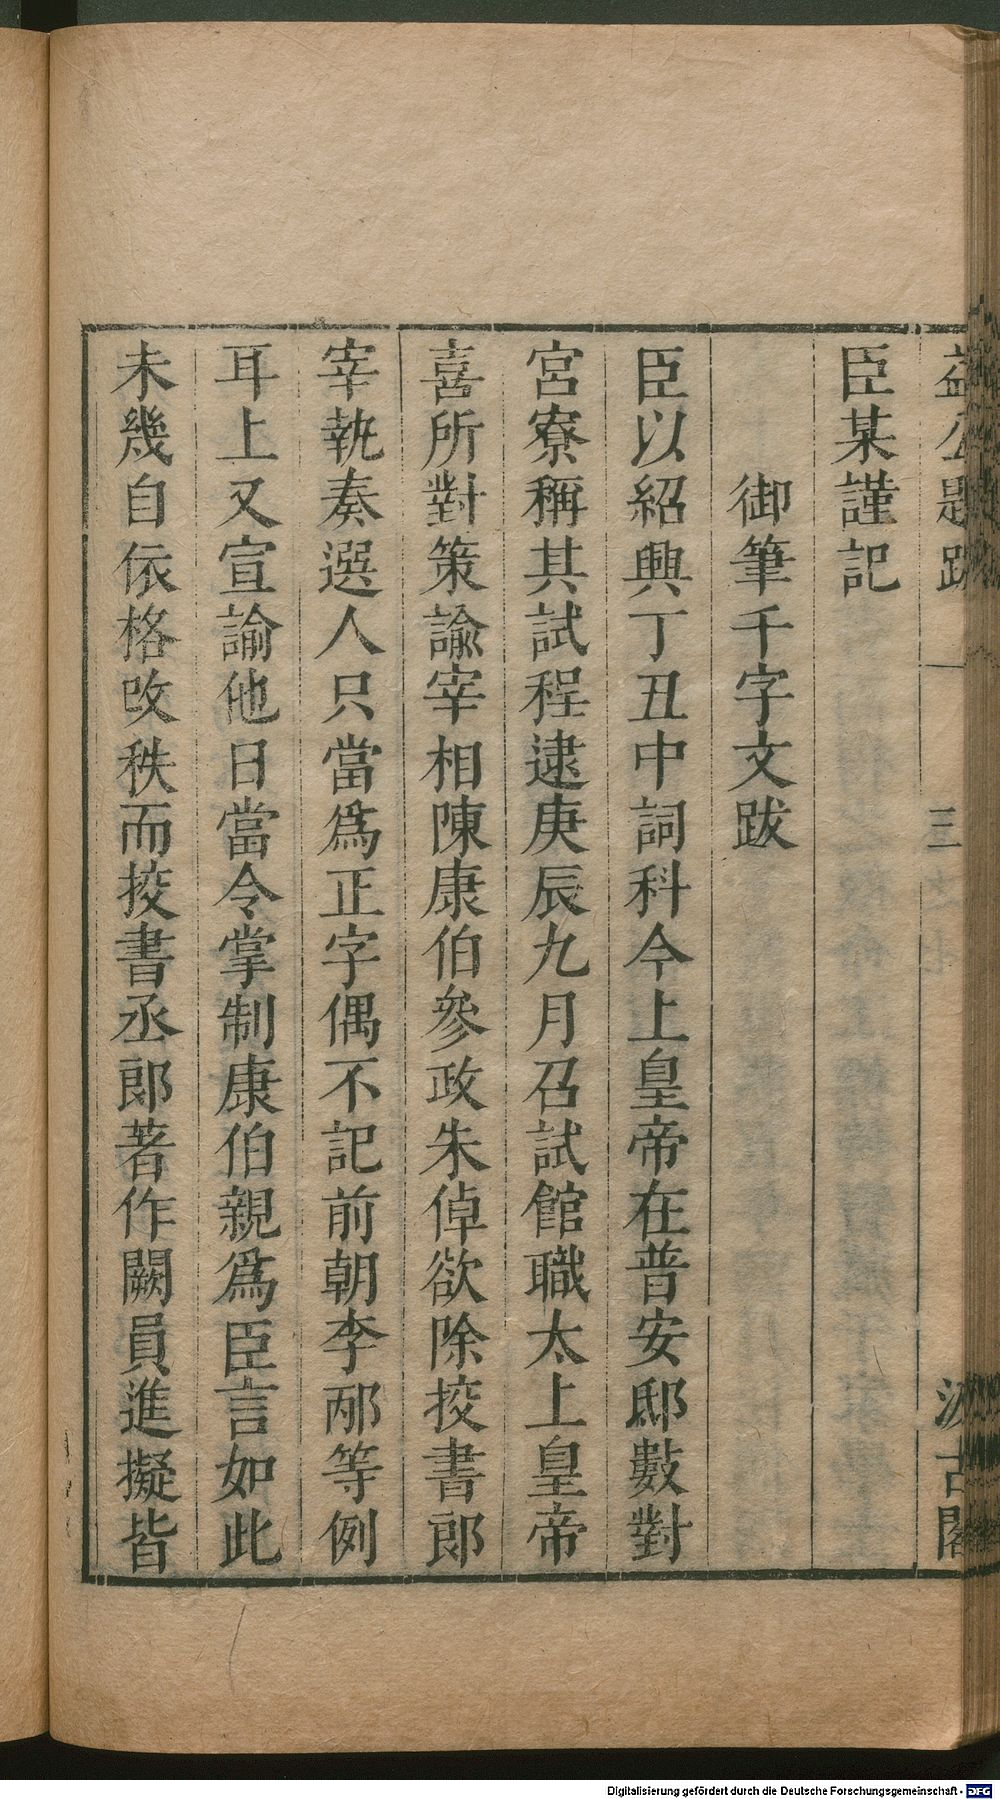 益公題跋 一 三 汲古閣
臣某謹記
御筆千字文跋
臣以紹興丁丑中詞科今上皇帝在普安邸數對
宮寮稱其試程逮庚辰九月召試館職太上皇帝
喜所對策諭宰相陳康伯參政朱倬欲除挍書郎
宰執奏選人只當爲正字偶不記前朝李邴等例
耳上又宣諭他日當令掌制康伯親爲臣言如此
未幾自依格攺秩而挍書丞郎著作闕員進擬皆
Digitalisierung gefördert durch die Deutsche Forschungsgemeinschaft - DFG